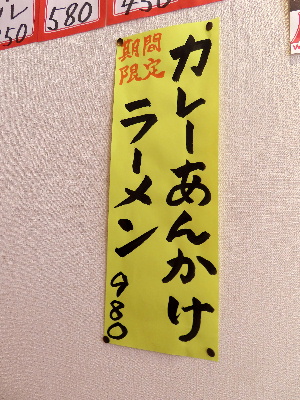 580
450
期間
限定
カレーあんかけ
ラーメン
980